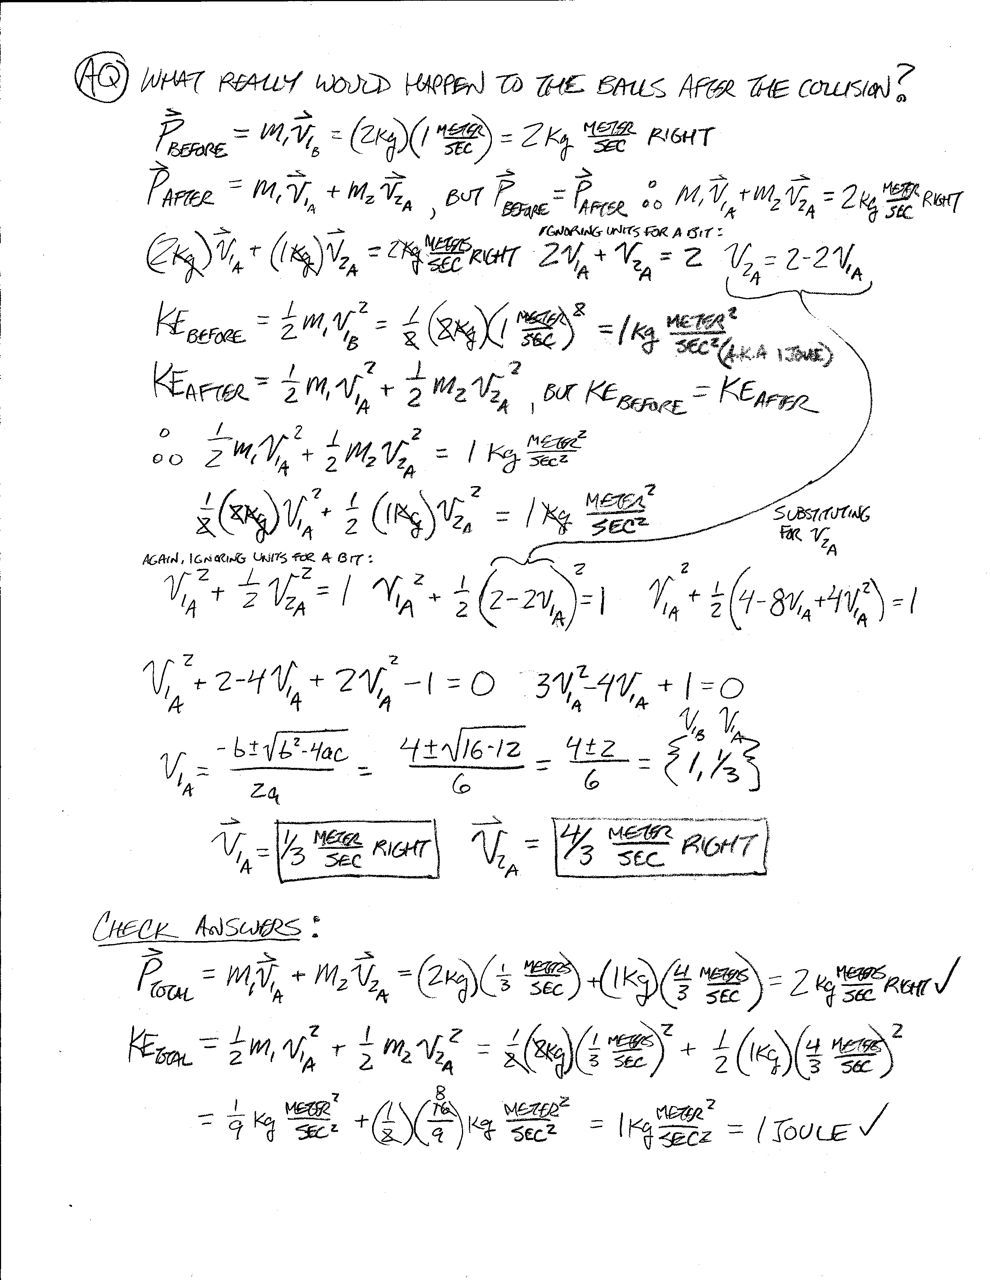 AQ WHAT REALLY WOULD HAPPEN TO THE BALLS AFTER THE COLLISION?
P⃗_BEFORE = m₁v⃗_1B = (2kg)(1 METER/SEC) = 2 kg METER/SEC RIGHT
P⃗_AFTER = m₁v⃗_1A + m₂v⃗_2A, BUT P⃗_BEFORE = P⃗_AFTER ∴ m₁v⃗_1A + m₂v⃗_2A = 2 kg METER/SEC RIGHT
IGNORING UNITS FOR A BIT:
(2kg)v⃗_1A + (1kg)v⃗_2A = 2 kg METERS/SEC RIGHT 2v_1A + v_2A = 2 v_2A = 2-2v_1A
KE_BEFORE = 1/2 m₁v_1B² = 1/2 (2kg)(1 METER/SEC)² = 1 kg METER²/SEC² (A.K.A 1 JOULE)
KE_AFTER = 1/2 m₁v_1A² + 1/2 m₂v_2A², BUT KE_BEFORE = KE_AFTER
∴ 1/2 m₁v_1A² + 1/2 m₂v_2A² = 1 kg METER²/SEC²
1/2 (2kg)v_1A² + 1/2 (1kg)v_2A² = 1 kg METER²/SEC²
SUBSTITUTING
FOR v_2A
AGAIN, IGNORING UNITS FOR A BIT:
v_1A² + 1/2 v_2A² = 1 v_1A² + 1/2 (2-2v_1A)² = 1 v_1A² + 1/2 (4-8v_1A+4v_1A²) = 1
v_1A² + 2-4v_1A + 2v_1A² -1 = 0 3v_1A² -4v_1A + 1 = 0
v_1B v_1A
v_1A = (-b±√(b²-4ac))/2a = (4±√(16-12))/6 = (4±2)/6 = {1, 1/3}
v⃗_1A = 1/3 METER/SEC RIGHT v⃗_2A = 4/3 METER/SEC RIGHT
CHECK ANSWERS:
P⃗_TOTAL = m₁v⃗_1A + m₂v⃗_2A = (2kg)(1/3 METERS/SEC) + (1kg)(4/3 METERS/SEC) = 2 kg METERS/SEC RIGHT ✓
KE_TOTAL = 1/2 m₁v_1A² + 1/2 m₂v_2A² = 1/2 (2kg)(1/3 METERS/SEC)² + 1/2 (1kg)(4/3 METERS/SEC)²
= 1/9 kg METER²/SEC² + (1/2)(16/9) 8 kg METER²/SEC² = 1 kg METER²/SEC² = 1 JOULE ✓